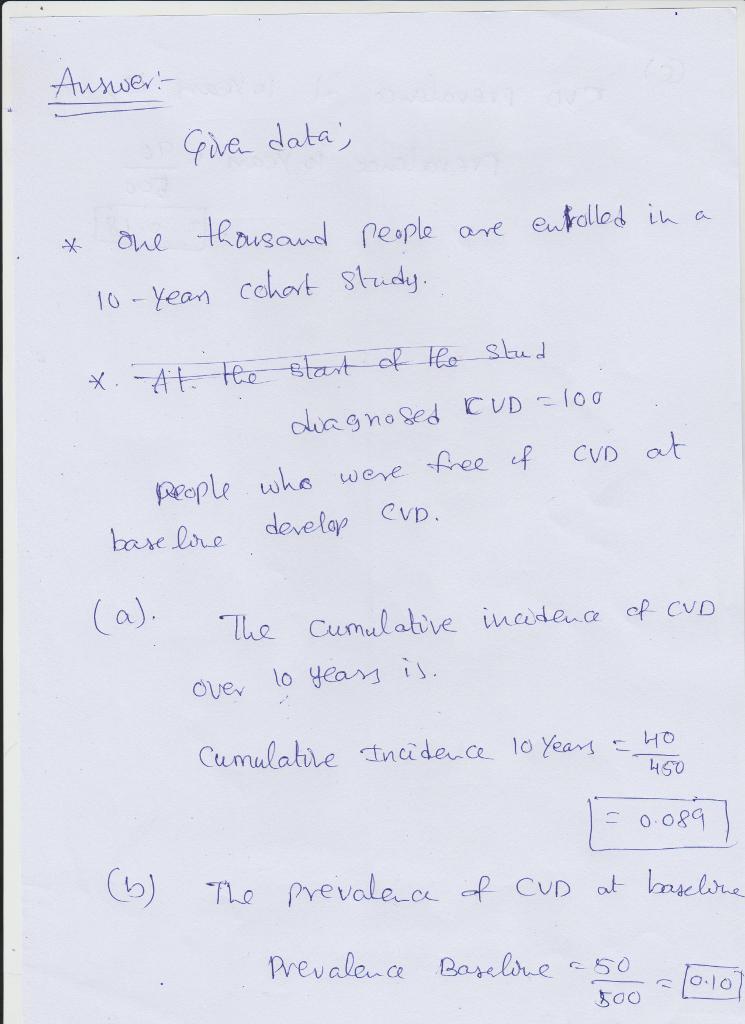 Answer:-
Given data;
* one thousand people are enrolled in a
10-Years cohort study.
*. At. the start of the Stud
diagnosed CVD = 100
people who were free of CVD at
baseline develop CVD.
(a). The cumulative incidence of CVD
over 10 years is.
Cumulative Incidence 10 Years = 40/450
= 0.089
(b) The prevalence of CVD at baseline
Prevalence Baseline = 50/500 = 0.10